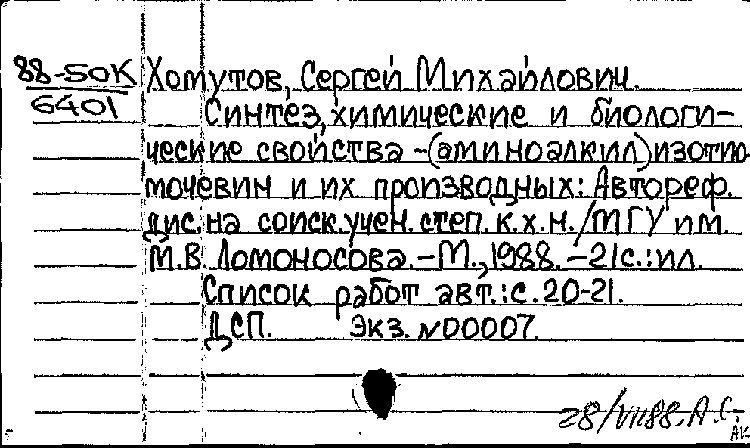 88-50К Хомутов, Сергей Михайлович.
6401 Синтез, химические и биологи-
ческие свойства -(аминоалкил)изотио
мочевин и их производных: Автореф.
дис. на соиск. учен. степ. к.х.н. / МГУ им.
М.В. Ломоносова. - М., 1988. - 21с.: ил.
Список работ авт.: с. 20-21.
ДСП. Экз. N00007.
28/VII88. А.С-
АК